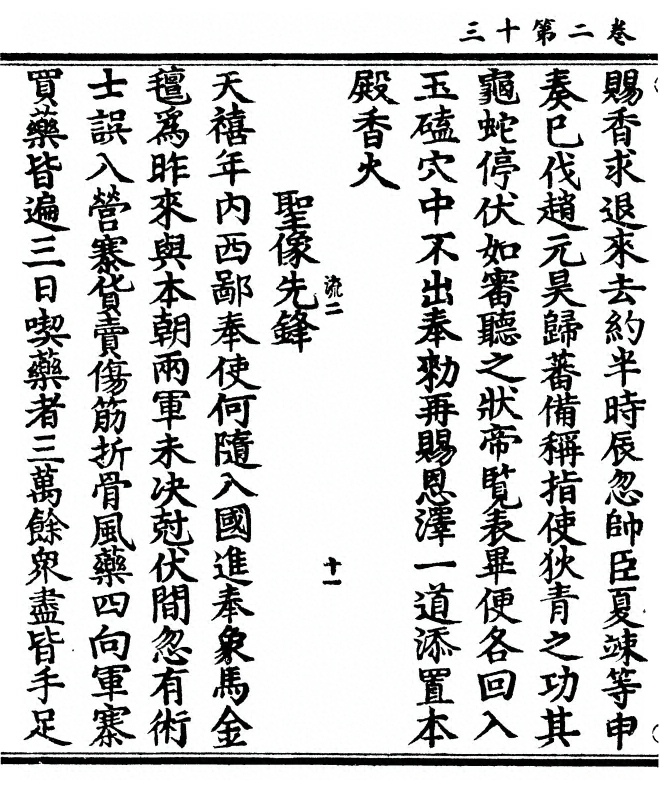 三十第二卷
賜香求退來去約半時辰忽帥臣夏竦等申
奏已伐趙元昊歸蕃備稱指使狄青之功其
龜蛇停伏如審聽之狀帝覽表畢便各回入
玉磕穴中不出奉勑再賜恩澤一道添置本
殿香火
流二
十一
聖像先鋒
天禧年內西鄙奉使何隨入國進奉象馬金
氊為昨來與本朝兩軍未决尅伏間忽有術
士誤入營寨貨賣傷筋折骨風藥四向軍寨
買藥皆遍三日喫藥者三萬餘衆盡皆手足